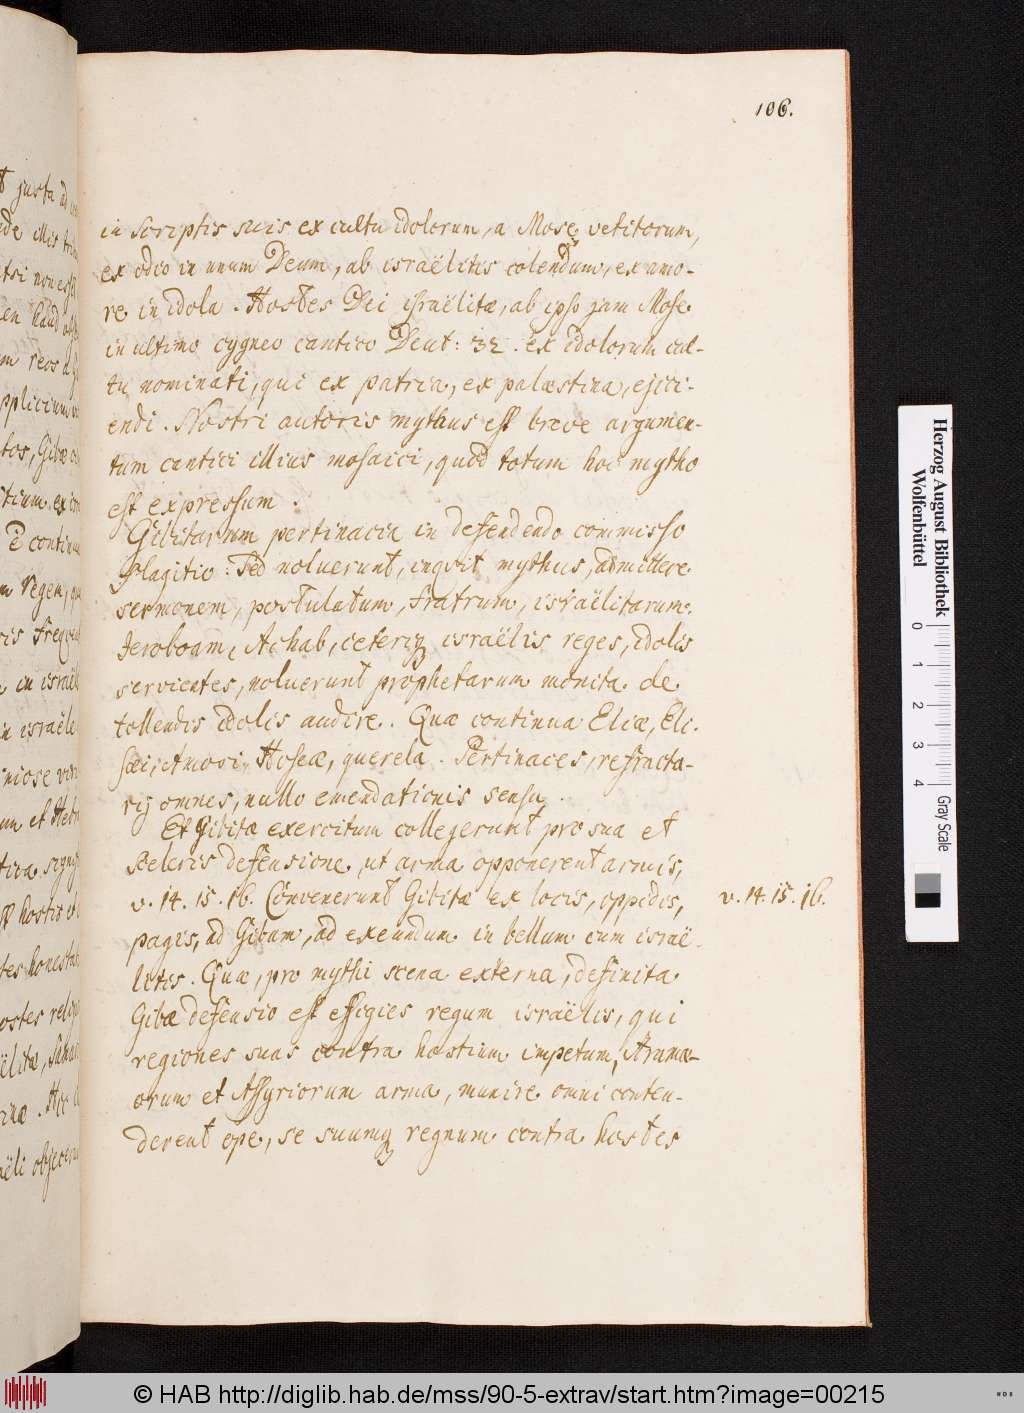 106.
in Scriptis suis ex cultu idolorum, a Mose vetitorum,
ex odio in unum Deum, ab israëlitis colendum, ex amo-
re in idola. Hostes Dei israëlitæ, ab ipso jam Mose
in ultimo cygneo cantico Deut: 32. ex idolorum cul-
tu nominati, qui ex patria, ex palæstina, ejici-
endi. Nostri autoris mythus est breve argumen-
tum cantici illius mosaici, quod totum hoc mytho
est expressum.
Gibitarum pertinacia in defendendo commisso
flagitio: Sed noluerunt, inquit mythus, admittere
sermonem, postulatum, fratrum, israëlitarum.
Jeroboam, Achab, ceteriq israëlis reges, idolis
servientes, noluerunt prophetarum monita de
tollendis idolis audire. Quæ continua Eliæ, Eli-
sæi, Amosi, Hoseæ, querela. Pertinaces, refracta-
rij omnes, nullo emendationis sensu.
Et Gibitæ exercitum collegerunt pro sua et
sceleris defensione, ut arma opponerent armis,
v. 14. 15. 16. Convenerunt Gibitæ ex locis, oppidis,
v. 14. 15. 16.
pagis, ad Gibam, ad exeundum in bellum cum israë-
litis. Quæ, pro mythi scena externa, definita
Gibæ defensio est effigies regum israëlis, qui
regiones suas contra hostium impetum, Aramæ-
orum et Assyriorum arma, munire omni conten-
derent ope, se suumq regnum contra hostes
Herzog August Bibliothek
Wolfenbüttel
0 1 2 3 4
Gray Scale
© HAB http://diglib.hab.de/mss/90-5-extrav/start.htm?image=00215